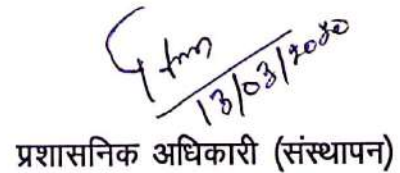 13/03/2020
प्रशासनिक अधिकारी (संस्थापन)